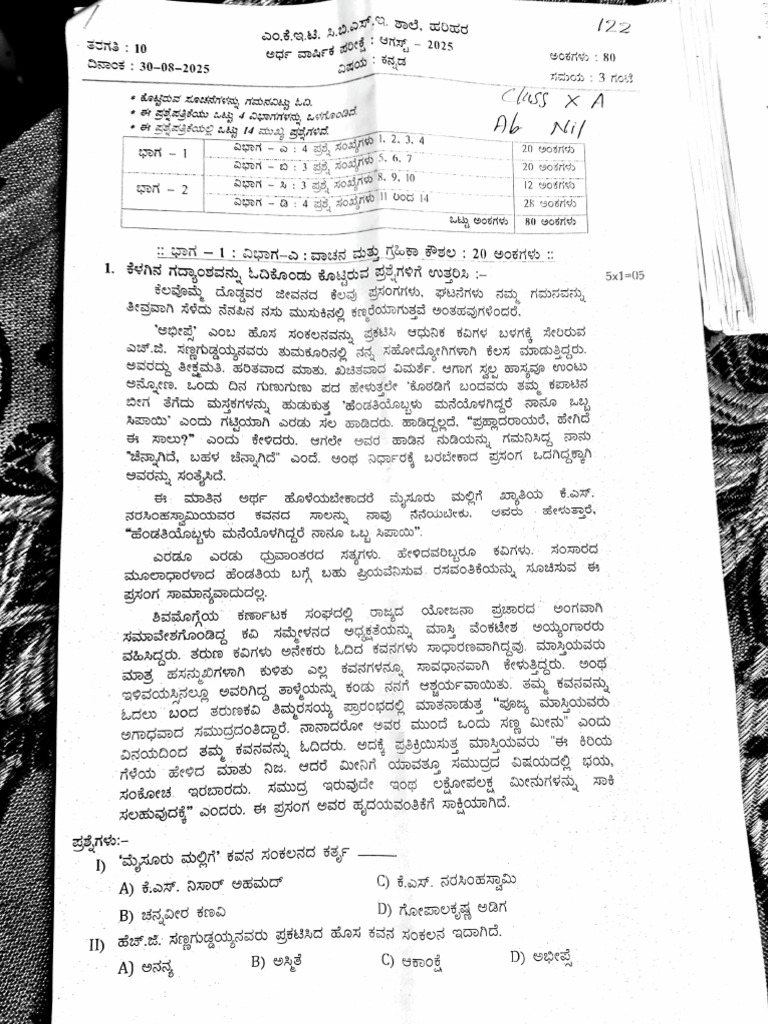 122
ಎಂ.ಕೆ.ಇ.ಟಿ. ಸಿ.ಬಿ.ಎಸ್.ಇ. ಶಾಲೆ, ಹರಿಹರ
ತರಗತಿ : 10
ಅರ್ಧ ವಾರ್ಷಿಕ ಪರೀಕ್ಷೆ : ಆಗಸ್ಟ್ – 2025
ಅಂಕಗಳು : 80
ದಿನಾಂಕ : 30-08-2025
ವಿಷಯ : ಕನ್ನಡ
ಸಮಯ : 3 ಗಂಟೆ
• ಕೊಟ್ಟಿರುವ ಸೂಚನೆಗಳನ್ನು ಗಮನವಿಟ್ಟು ಓದಿ.
Class X A
• ಈ ಪ್ರಶ್ನೆಪತ್ರಿಕೆಯು ಒಟ್ಟು 4 ವಿಭಾಗಗಳನ್ನು ಒಳಗೊಂಡಿದೆ.
Ab Nil
• ಈ ಪ್ರಶ್ನೆಪತ್ರಿಕೆಯಲ್ಲಿ ಒಟ್ಟು 14 ಮುಖ್ಯ ಪ್ರಶ್ನೆಗಳಿವೆ.
ಭಾಗ – 1 ವಿಭಾಗ – ಎ : 4 ಪ್ರಶ್ನೆ ಸಂಖ್ಯೆಗಳು 1, 2, 3, 4 20 ಅಂಕಗಳು
ವಿಭಾಗ – ಬಿ : 3 ಪ್ರಶ್ನೆ ಸಂಖ್ಯೆಗಳು 5, 6, 7 20 ಅಂಕಗಳು
ಭಾಗ – 2 ವಿಭಾಗ – ಸಿ : 3 ಪ್ರಶ್ನೆ ಸಂಖ್ಯೆಗಳು 8, 9, 10 12 ಅಂಕಗಳು
ವಿಭಾಗ – ಡಿ : 4 ಪ್ರಶ್ನೆ ಸಂಖ್ಯೆಗಳು 11 ರಿಂದ 14 28 ಅಂಕಗಳು
ಒಟ್ಟು ಅಂಕಗಳು 80 ಅಂಕಗಳು
:: ಭಾಗ – 1 : ವಿಭಾಗ–ಎ : ವಾಚನ ಮತ್ತು ಗ್ರಹಿಕಾ ಕೌಶಲ : 20 ಅಂಕಗಳು ::
1. ಕೆಳಗಿನ ಗದ್ಯಾಂಶವನ್ನು ಓದಿಕೊಂಡು ಕೊಟ್ಟಿರುವ ಪ್ರಶ್ನೆಗಳಿಗೆ ಉತ್ತರಿಸಿ :– 5x1=05
ಕೆಲವೊಮ್ಮೆ ದೊಡ್ಡವರ ಜೀವನದ ಕೆಲವು ಪ್ರಸಂಗಗಳು, ಘಟನೆಗಳು ನಮ್ಮ ಗಮನವನ್ನು
ತೀವ್ರವಾಗಿ ಸೆಳೆದು ನೆನಪಿನ ನಸು ಮುಸುಕಿನಲ್ಲಿ ಕಣ್ಮರೆಯಾಗುತ್ತವೆ ಅಂತಹವುಗಳೆಂದರೆ,
'ಅಭೀಪ್ಸೆ' ಎಂಬ ಹೊಸ ಸಂಕಲನವನ್ನು ಪ್ರಕಟಿಸಿ ಆಧುನಿಕ ಕವಿಗಳ ಬಳಗಕ್ಕೆ ಸೇರಿರುವ
ಎಚ್.ಜಿ. ಸಣ್ಣಗುಡ್ಡಯ್ಯನವರು ತುಮಕೂರಿನಲ್ಲಿ ನನ್ನ ಸಹೋದ್ಯೋಗಿಗಳಾಗಿ ಕೆಲಸ ಮಾಡುತ್ತಿದ್ದರು.
ಅವರದ್ದು ತೀಕ್ಷ್ಣಮತಿ. ಹರಿತವಾದ ಮಾತು. ಖಚಿತವಾದ ವಿಮರ್ಶೆ. ಆಗಾಗ ಸ್ವಲ್ಪ ಹಾಸ್ಯವೂ ಉಂಟು
ಅನ್ನೋಣ. ಒಂದು ದಿನ ಗುಣುಗುಣು ಪದ ಹೇಳುತ್ತಲೇ 'ಕೊಠಡಿಗೆ ಬಂದವರು ತಮ್ಮ ಕಪಾಟಿನ
ಬೀಗ ತೆಗೆದು ಪುಸ್ತಕಗಳನ್ನು ಹುಡುಕುತ್ತ 'ಹೆಂಡತಿಯೊಬ್ಬಳು ಮನೆಯೊಳಗಿದ್ದರೆ ನಾನೂ ಒಬ್ಬ
ಸಿಪಾಯಿ' ಎಂದು ಗಟ್ಟಿಯಾಗಿ ಎರಡು ಸಲ ಹಾಡಿದರು. ಹಾಡಿದ್ದಲ್ಲದೆ, "ಪ್ರಹ್ಲಾದರಾಯರೆ, ಹೇಗಿದೆ
ಈ ಸಾಲು?" ಎಂದು ಕೇಳಿದರು. ಆಗಲೇ ಅವರ ಹಾಡಿನ ನುಡಿಯನ್ನು ಗಮನಿಸಿದ್ದ ನಾನು
"ಚೆನ್ನಾಗಿದೆ, ಬಹಳ ಚೆನ್ನಾಗಿದೆ" ಎಂದೆ. ಅಂಥ ನಿರ್ಧಾರಕ್ಕೆ ಬರಬೇಕಾದ ಪ್ರಸಂಗ ಒದಗಿದ್ದಕ್ಕಾಗಿ
ಅವರನ್ನು ಸಂತೈಸಿದೆ.
ಈ ಮಾತಿನ ಅರ್ಥ ಹೊಳೆಯಬೇಕಾದರೆ ಮೈಸೂರು ಮಲ್ಲಿಗೆ ಖ್ಯಾತಿಯ ಕೆ.ಎಸ್.
ನರಸಿಂಹಸ್ವಾಮಿಯವರ ಕವನದ ಸಾಲನ್ನು ನಾವು ನೆನೆಯಬೇಕು. ಅವರು ಹೇಳುತ್ತಾರೆ,
"ಹೆಂಡತಿಯೊಬ್ಬಳು ಮನೆಯೊಳಗಿದ್ದರೆ ನಾನೂ ಒಬ್ಬ ಸಿಪಾಯಿ".
ಎರಡೂ ಎರಡು ಧ್ರುವಾಂತರದ ಸತ್ಯಗಳು. ಹೇಳಿದವರಿಬ್ಬರೂ ಕವಿಗಳು. ಸಂಸಾರದ
ಮೂಲಾಧಾರಳಾದ ಹೆಂಡತಿಯ ಬಗ್ಗೆ ಬಹು ಪ್ರಿಯವೆನಿಸುವ ರಸವಂತಿಕೆಯನ್ನು ಸೂಚಿಸುವ ಈ
ಪ್ರಸಂಗ ಸಾಮಾನ್ಯವಾದುದಲ್ಲ.
ಶಿವಮೊಗ್ಗೆಯ ಕರ್ಣಾಟಕ ಸಂಘದಲ್ಲಿ ರಾಜ್ಯದ ಯೋಜನಾ ಪ್ರಚಾರದ ಅಂಗವಾಗಿ
ಸಮಾವೇಶಗೊಂಡಿದ್ದ ಕವಿ ಸಮ್ಮೇಳನದ ಅಧ್ಯಕ್ಷತೆಯನ್ನು ಮಾಸ್ತಿ ವೆಂಕಟೇಶ ಅಯ್ಯಂಗಾರರು
ವಹಿಸಿದ್ದರು. ತರುಣ ಕವಿಗಳು ಅನೇಕರು ಓದಿದ ಕವನಗಳು ಸಾಧಾರಣವಾಗಿದ್ದವು. ಮಾಸ್ತಿಯವರು
ಮಾತ್ರ ಹಸನ್ಮುಖಿಗಳಾಗಿ ಕುಳಿತು ಎಲ್ಲ ಕವನಗಳನ್ನೂ ಸಾವಧಾನವಾಗಿ ಕೇಳುತ್ತಿದ್ದರು. ಅಂಥ
ಇಳಿವಯಸ್ಸಿನಲ್ಲೂ ಅವರಿಗಿದ್ದ ತಾಳ್ಮೆಯನ್ನು ಕಂಡು ನನಗೆ ಆಶ್ಚರ್ಯವಾಯಿತು. ತಮ್ಮ ಕವನವನ್ನು
ಓದಲು ಬಂದ ತರುಣಕವಿ ತಿಮ್ಮರಸಯ್ಯ ಪ್ರಾರಂಭದಲ್ಲಿ ಮಾತನಾಡುತ್ತ "ಪೂಜ್ಯ ಮಾಸ್ತಿಯವರು
ಅಗಾಧವಾದ ಸಮುದ್ರದಂತಿದ್ದಾರೆ. ನಾನಾದರೋ ಅವರ ಮುಂದೆ ಒಂದು ಸಣ್ಣ ಮೀನು" ಎಂದು
ವಿನಯದಿಂದ ತಮ್ಮ ಕವನವನ್ನು ಓದಿದರು. ಅದಕ್ಕೆ ಪ್ರತಿಕ್ರಿಯಿಸುತ್ತ ಮಾಸ್ತಿಯವರು "ಈ ಕಿರಿಯ
ಗೆಳೆಯ ಹೇಳಿದ ಮಾತು ನಿಜ. ಆದರೆ ಮೀನಿಗೆ ಯಾವತ್ತೂ ಸಮುದ್ರದ ವಿಷಯದಲ್ಲಿ ಭಯ,
ಸಂಕೋಚ ಇರಬಾರದು. ಸಮುದ್ರ ಇರುವುದೇ ಇಂಥ ಲಕ್ಷೋಪಲಕ್ಷ ಮೀನುಗಳನ್ನು ಸಾಕಿ
ಸಲಹುವುದಕ್ಕೆ" ಎಂದರು. ಈ ಪ್ರಸಂಗ ಅವರ ಹೃದಯವಂತಿಕೆಗೆ ಸಾಕ್ಷಿಯಾಗಿದೆ.
ಪ್ರಶ್ನೆಗಳು:–
I) 'ಮೈಸೂರು ಮಲ್ಲಿಗೆ' ಕವನ ಸಂಕಲನದ ಕರ್ತೃ ____
A) ಕೆ.ಎಸ್. ನಿಸಾರ್ ಅಹಮದ್ C) ಕೆ.ಎಸ್. ನರಸಿಂಹಸ್ವಾಮಿ
B) ಚನ್ನವೀರ ಕಣವಿ D) ಗೋಪಾಲಕೃಷ್ಣ ಅಡಿಗ
II) ಹೆಚ್.ಜಿ. ಸಣ್ಣಗುಡ್ಡಯ್ಯನವರು ಪ್ರಕಟಿಸಿದ ಹೊಸ ಕವನ ಸಂಕಲನ ಇದಾಗಿದೆ.
A) ಅನನ್ಯ B) ಅಸ್ಮಿತೆ C) ಆಕಾಂಕ್ಷೆ D) ಅಭೀಪ್ಸೆ